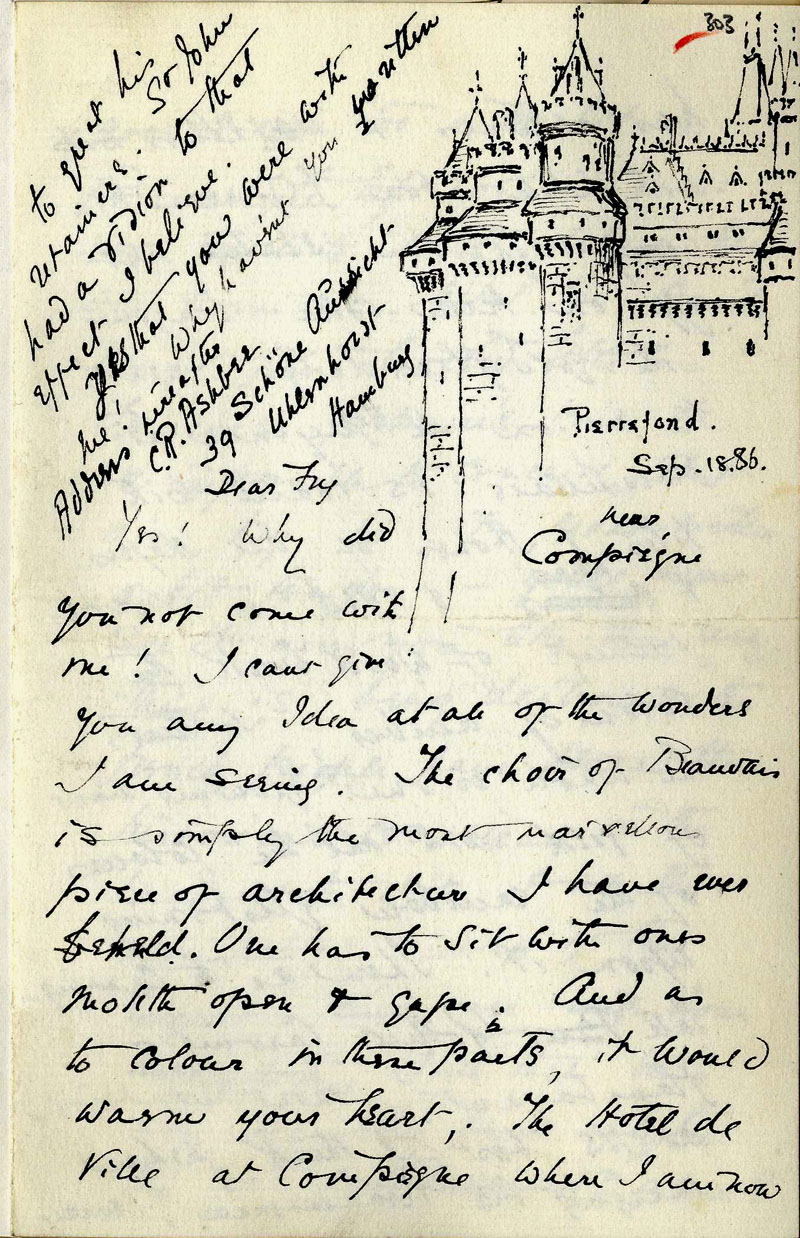 303
to greet his
retainers. So John
had a vision to that
effect I believe.
Yes that you were with
me! Why havint you written
Address hereafter
C.R. Ashbee
39 Schöne Aussicht
Uhlenhorst
Hamburg
Pierrefond.
Sep. 18. 86.
near
Compiègne
Dear Fry
Yes! Why did
you not come with
me! I cant give
you any Idea at all of the wonders
I am seeing. The choir of Beauvais
is simply the most marvellous
piece of architecture I have ever
beheld. One has to sit with ones
mouth open & gape. And as
to colour in these parts, it would
warm your heart. The Hotel de
Ville at Compiègne where I am now